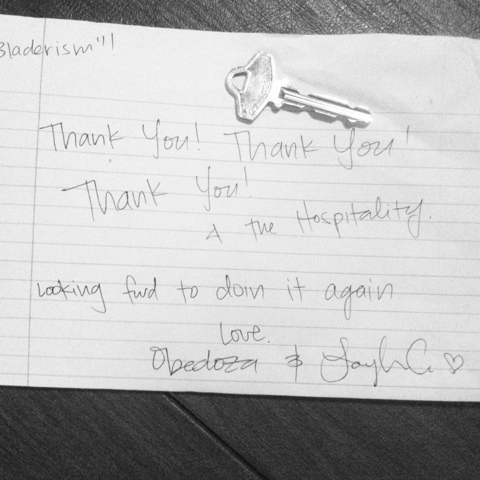 Bladerism"!
Thank You! Thank You!
Thank You!
4 the Hospitality.
Looking fwd to doin it again
Love.
Obedoza &